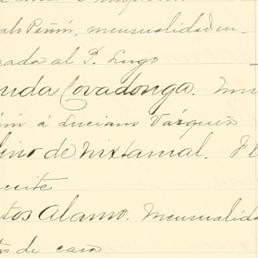 al Peñin, mensualidad en
gada al P. Lugo
nda Covadonga.
in á Luciano Vázquez
lino de Nixtamal. Fl
ceite
tos Alamo. Mensualida
os de casa